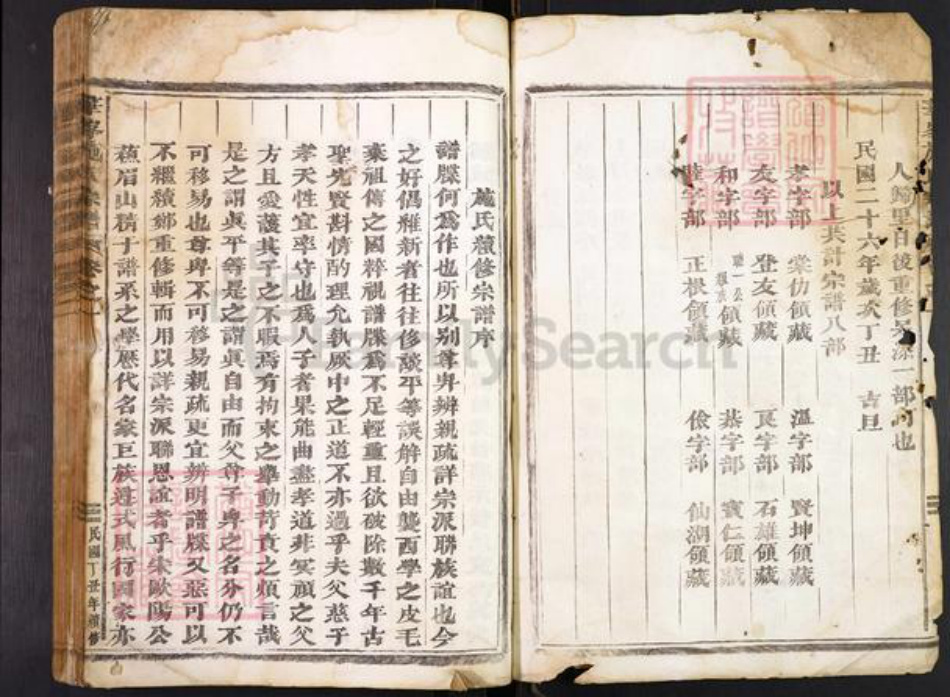 人歸里日後重修宗源一部可也
民國二十六年歲次丁丑 吉旦
以上共計宗譜八部
孝字部 棠仂領藏 溫字部 賢坤領藏
友字部 登友領藏 良字部 石雄領藏
和字部 領藏 恭字部 賓仁領藏
睦字部 正根領藏 儉字部 仙湖領藏
施氏續修宗譜序
譜牒何為作也所以別尊卑辨親疏詳宗派聯族誼也今
之好倡維新者往往侈談平等誤解自由襲西學之皮毛
棄祖傳之國粹視譜牒為不足輕重且欲破除數千年古
聖先賢斟情酌理允執厥中之正道不亦過乎夫父慈子
孝天性宜率守也為人子者果能曲盡孝道非冥頑之父
方且愛護其子之不暇焉有拘束之舉動苛責之煩言哉
是之謂真平等是之謂真自由而父尊子卑之名分仍不
可移易也尊卑不可移易親疏更宜辨明譜牒又惡可以
不繼續鄭重修輯而用以詳宗派聯恩誼者乎宋歐陽公
蘇眉山精于譜系之學歷代名家巨族遵式風行國家亦
民國丁丑年續修
FamilySearch